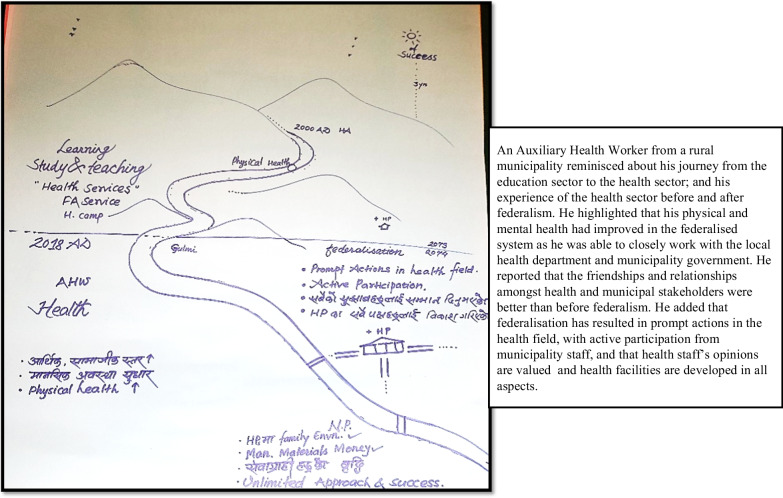 Success
3yn
2000 AD HA
Physical Health
Learning
Study & teaching
"Health Services"
FA Service
H. camp
+ HP
2018 AD
Gulmi
federalisation 2073
2074
AHW
Health
• Prompt Actions in health field.
• Active Participation.
• सबैको सुझावहरूलाई सम्मान दिनु
• HP का सबै पक्षहरूलाई विकास गरिएको
+ HP
• आर्थिक, सामाजीक स्तर ↑
• मानसिक अवस्था सुधार
• Physical health ↑
N.P.
• HP मा family Envn. ✓
• Man. Materials Money ✓
• सेवाग्राही हरूको वृद्धि
• Unlimited Approach & Success.
An Auxiliary Health Worker from a rural
municipality reminisced about his journey from the
education sector to the health sector; and his
experience of the health sector before and after
federalism. He highlighted that his physical and
mental health had improved in the federalised
system as he was able to closely work with the local
health department and municipality government. He
reported that the friendships and relationships
amongst health and municipal stakeholders were
better than before federalism. He added that
federalisation has resulted in prompt actions in the
health field, with active participation from
municipality staff, and that health staff's opinions
are valued and health facilities are developed in all
aspects.